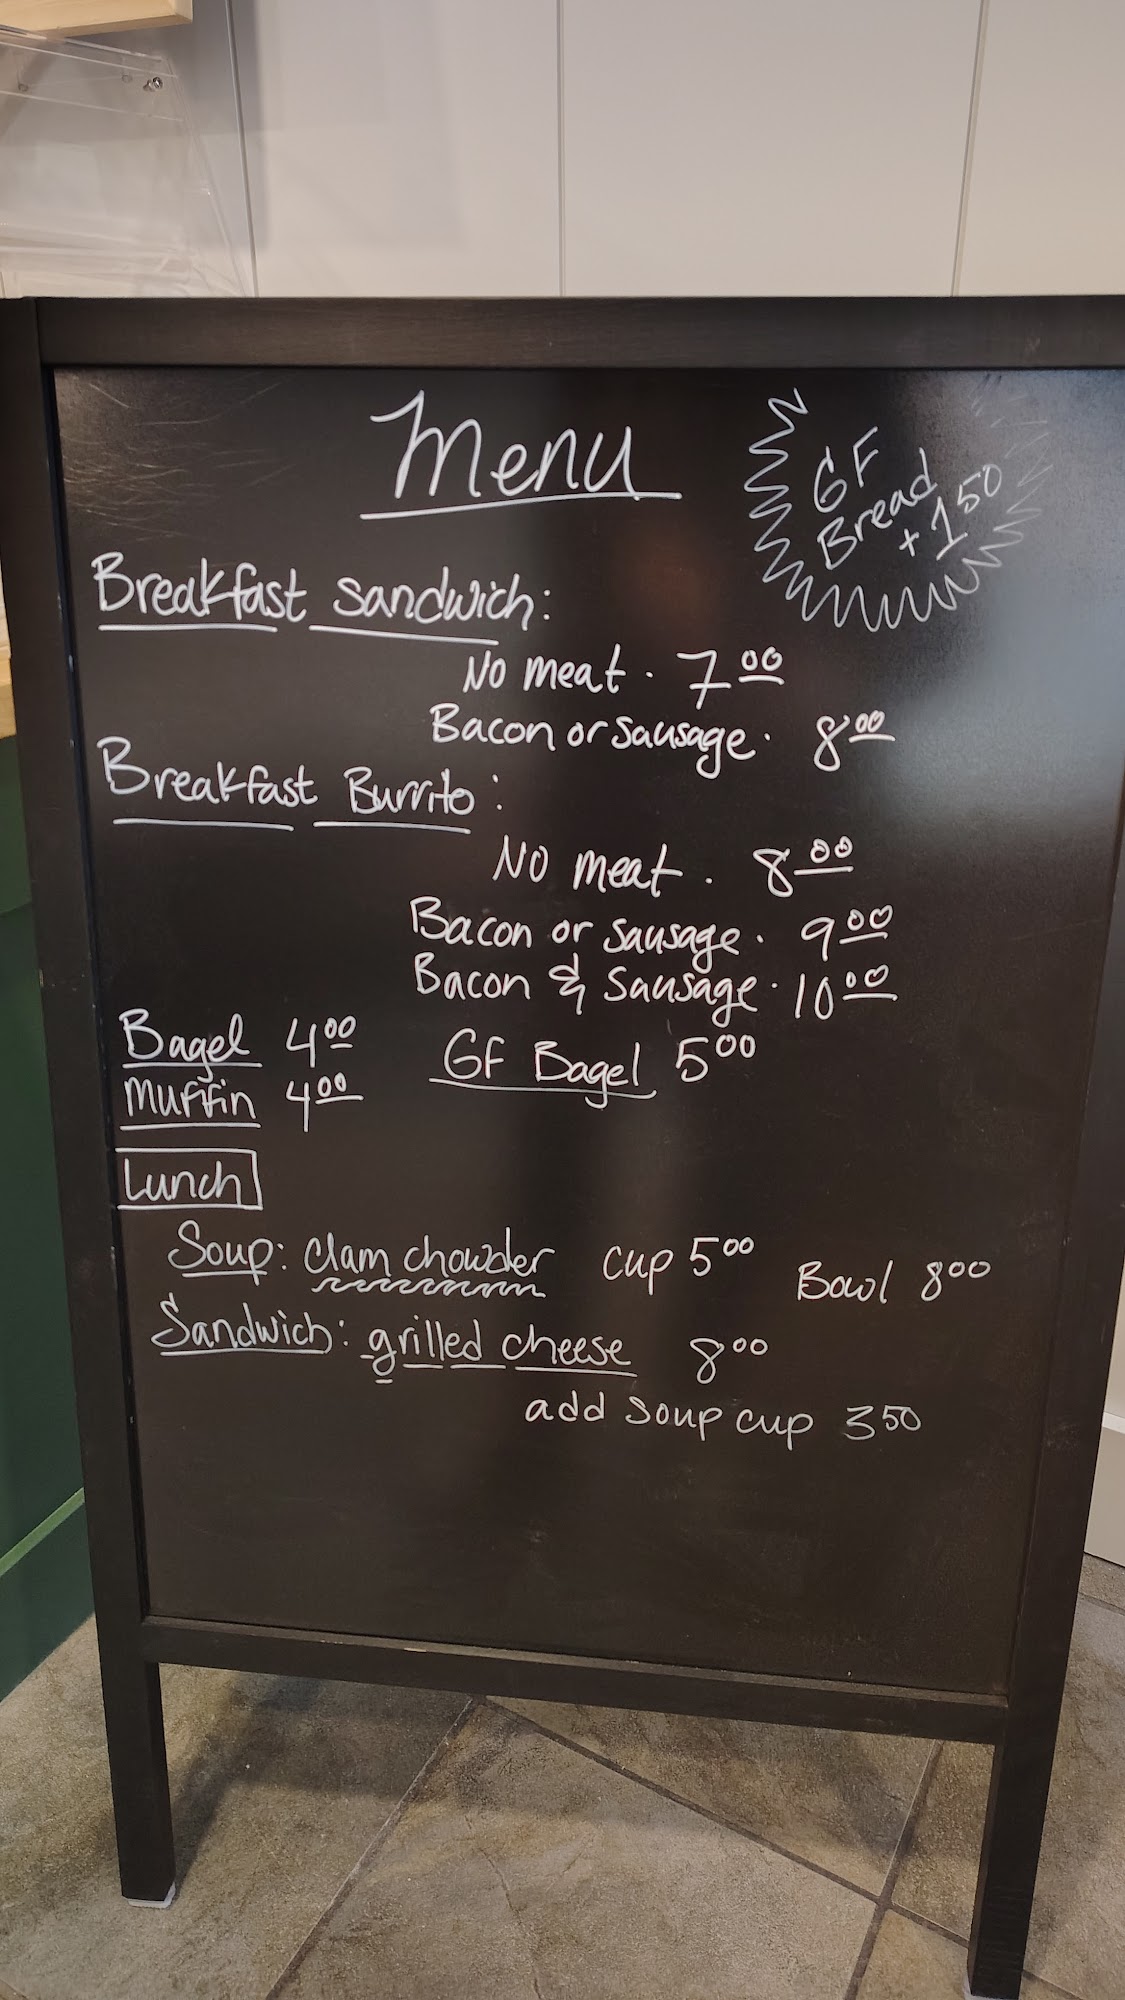 Menu
GF
Bread
+ 1.50
Breakfast Sandwich:
No meat . 7.00
Bacon or sausage . 8.00
Breakfast Burrito:
No meat . 8.00
Bacon or sausage . 9.00
Bacon & Sausage . 10.00
Bagel 4.00 GF Bagel 5.00
Muffin 4.00
Lunch
Soup: clam chowder cup 5.00 Bowl 8.00
Sandwich: grilled cheese 8.00
add soup cup 3.50